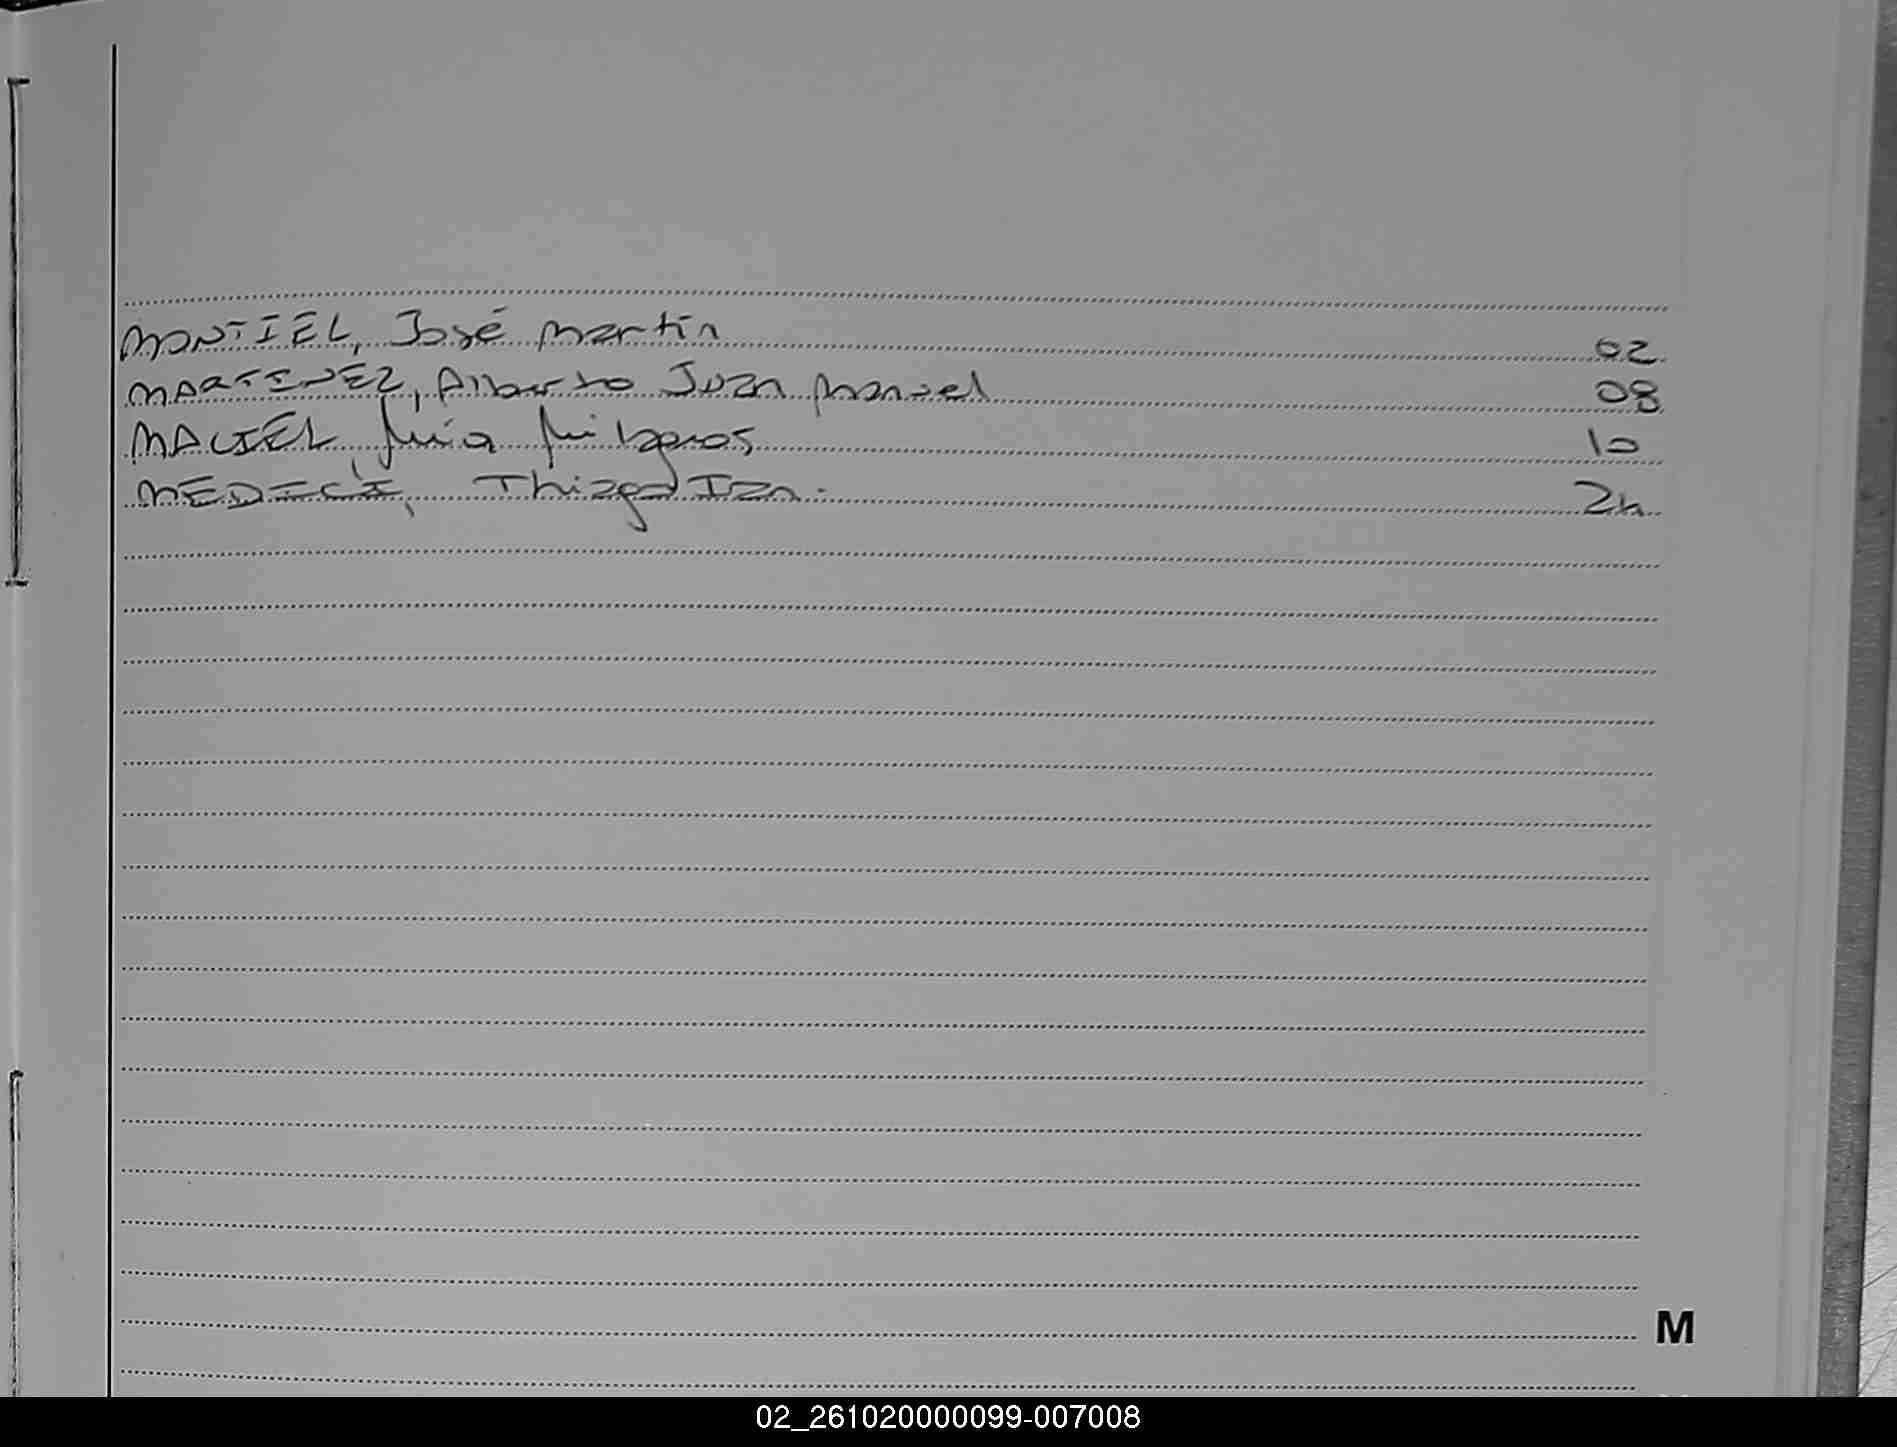 MONTIEL, José Martín 02
MARTINEZ, Alberto Juan Manuel 08
MACIEL, Mía Milagros 10
MEDICI, Thiago Ian. 24
M
02_261020000099-007008